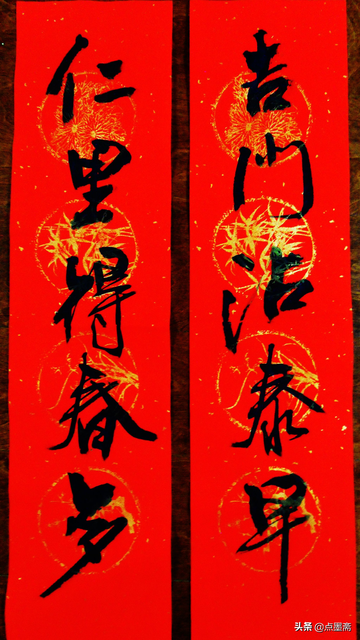 吉门沾泰早
仁里得春多
头条 @点墨斋